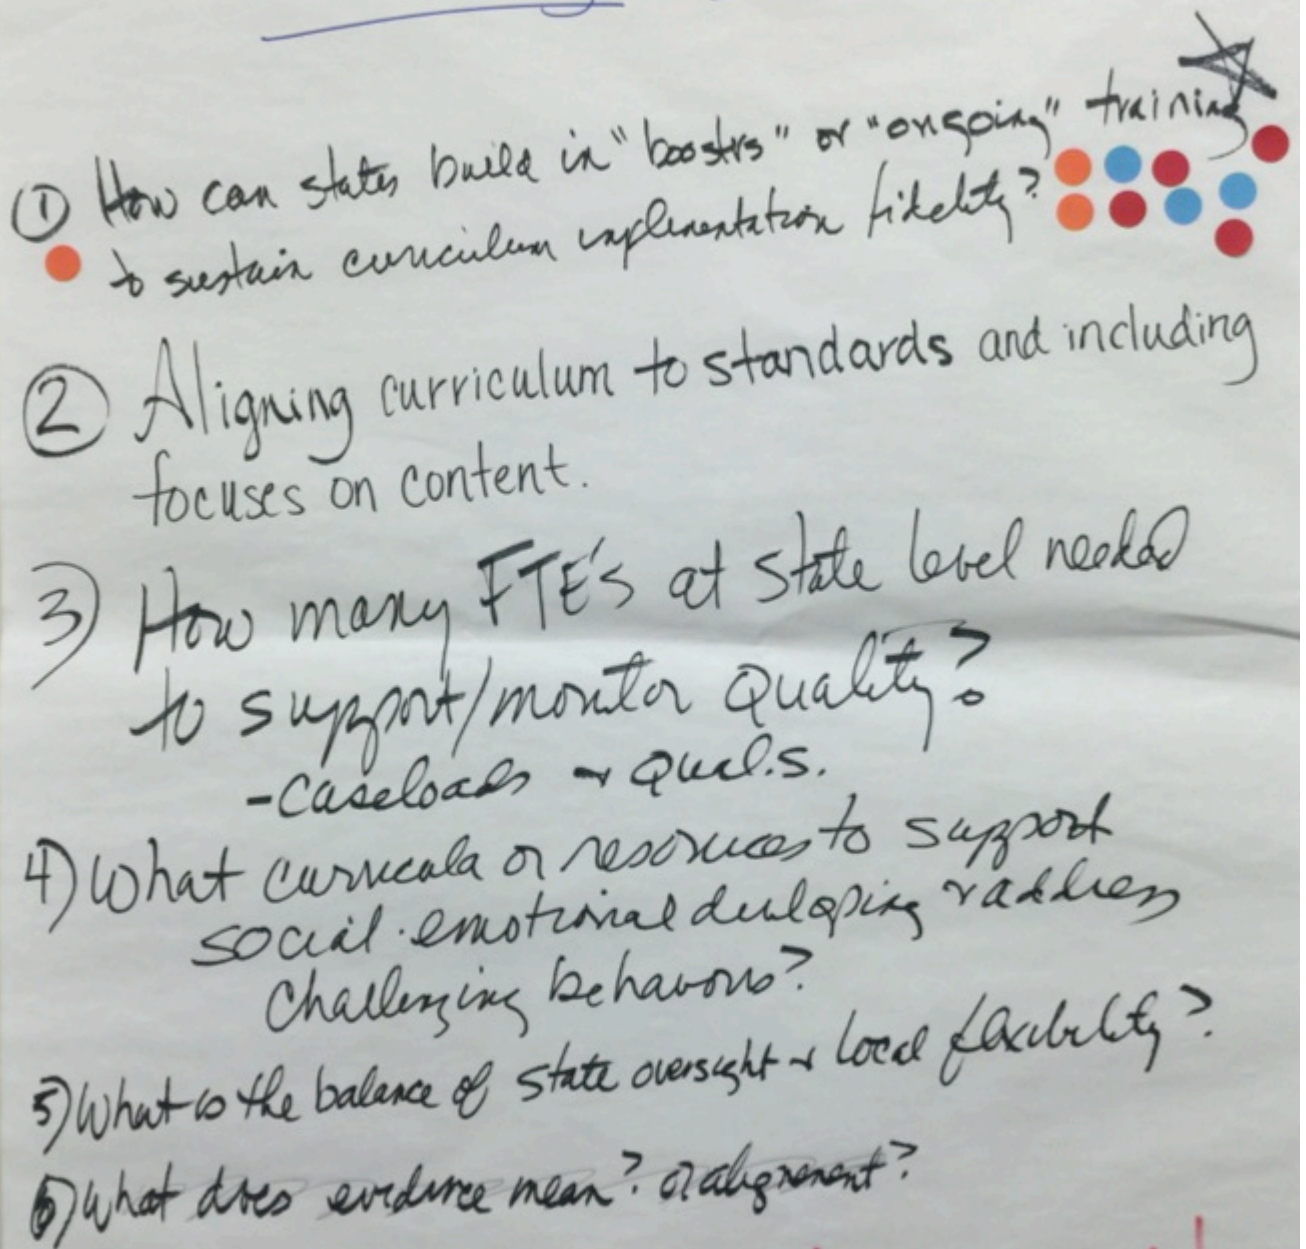 ① How can states build in "boostrs" or "ongoing" training
to sustain curriculum implementation fidelity?
② Aligning curriculum to standards and including
focuses on content.
3) How many FTE's at state level needed
to support/monitor Quality?
- Caseloads + Qual.s.
4) What curricula or resources to support
social-emotional developing + address
Challenging behaviors?
5) What is the balance of state oversight + local flexibility?
6) What does evidence mean? or alignment?